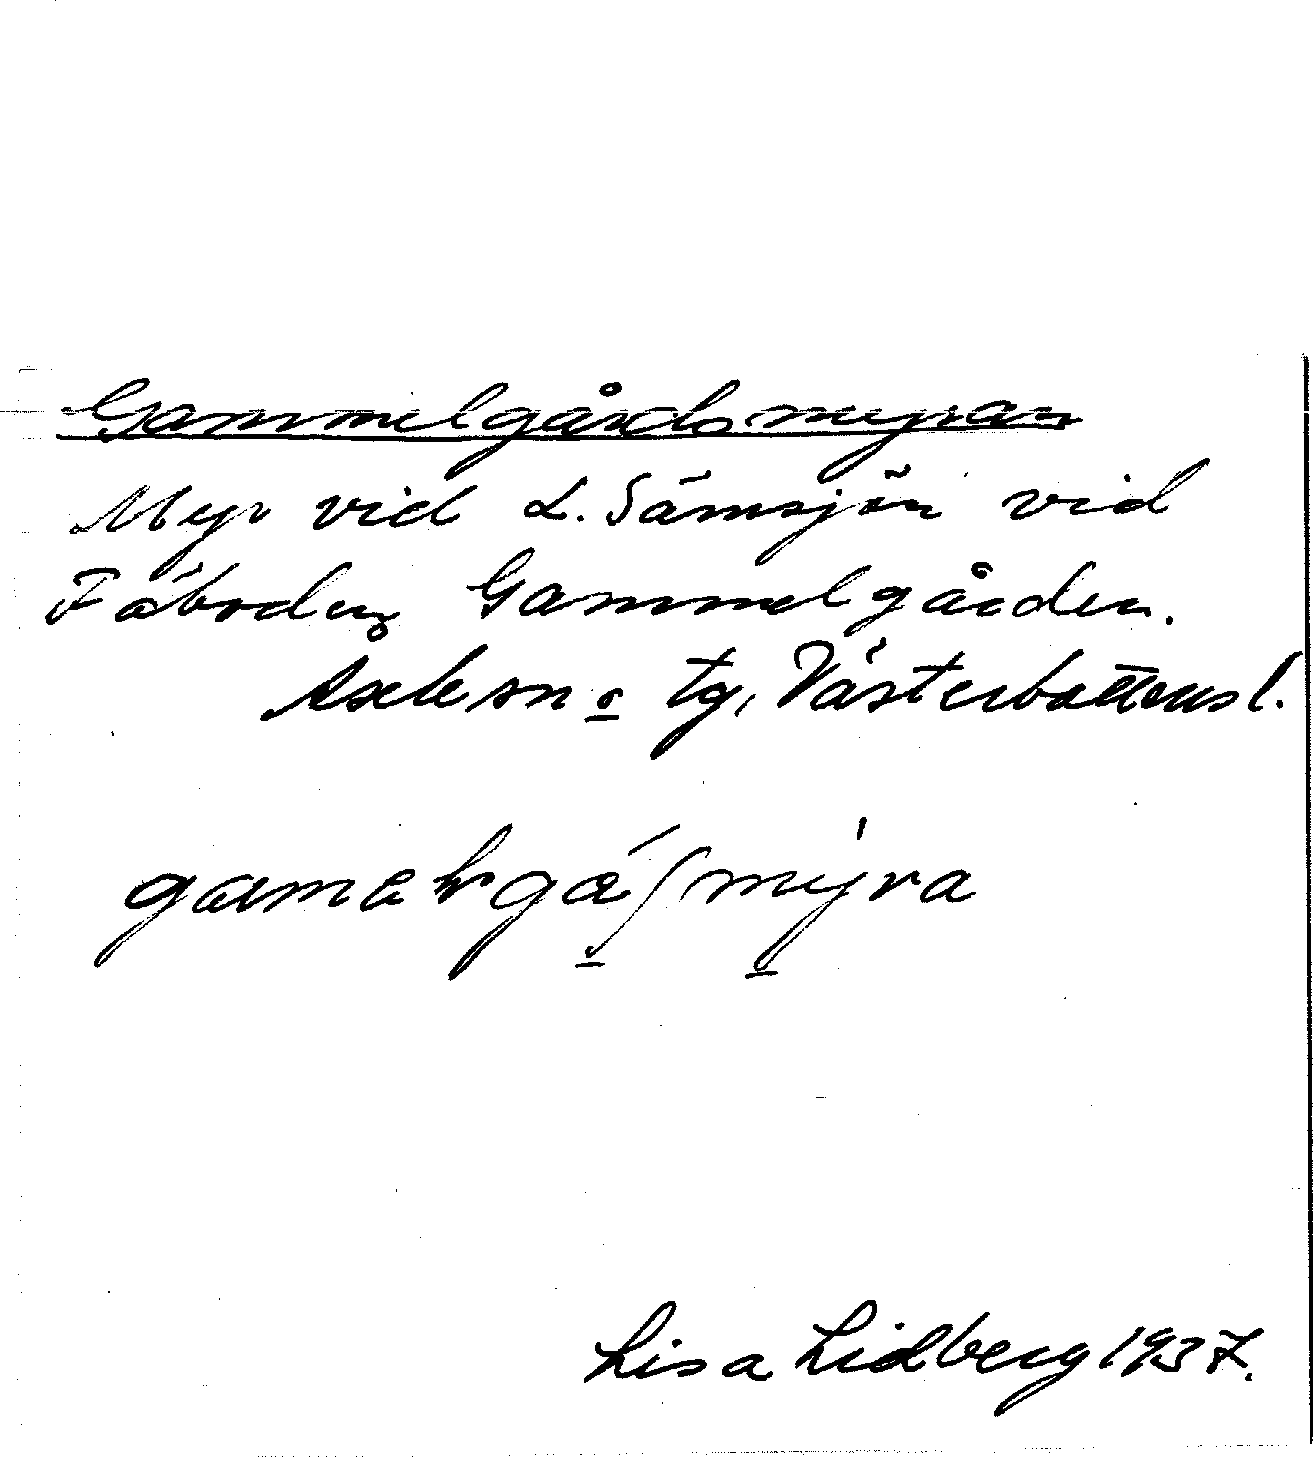 Gammelgårdsmyran
Myr vid L. Sämsjön vid
Fäboden Gammelgården.
Åsele sn o tg, Västerbottens l.
Lisa Lidberg 1937.